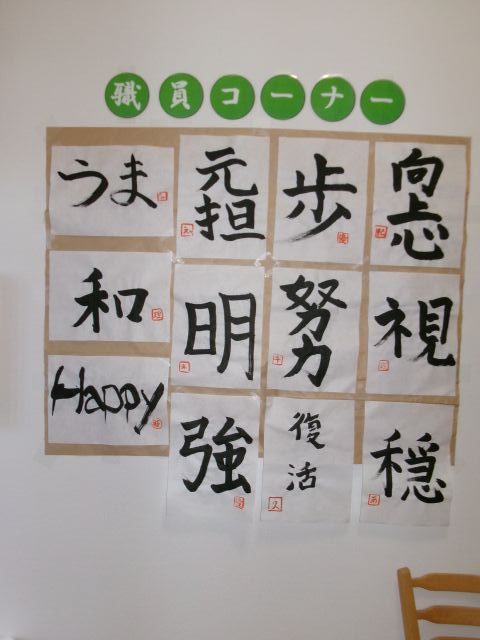 職員コーナー
うま
元担
歩
向上心
和
明
努力
視
Happy
強
復活
穏